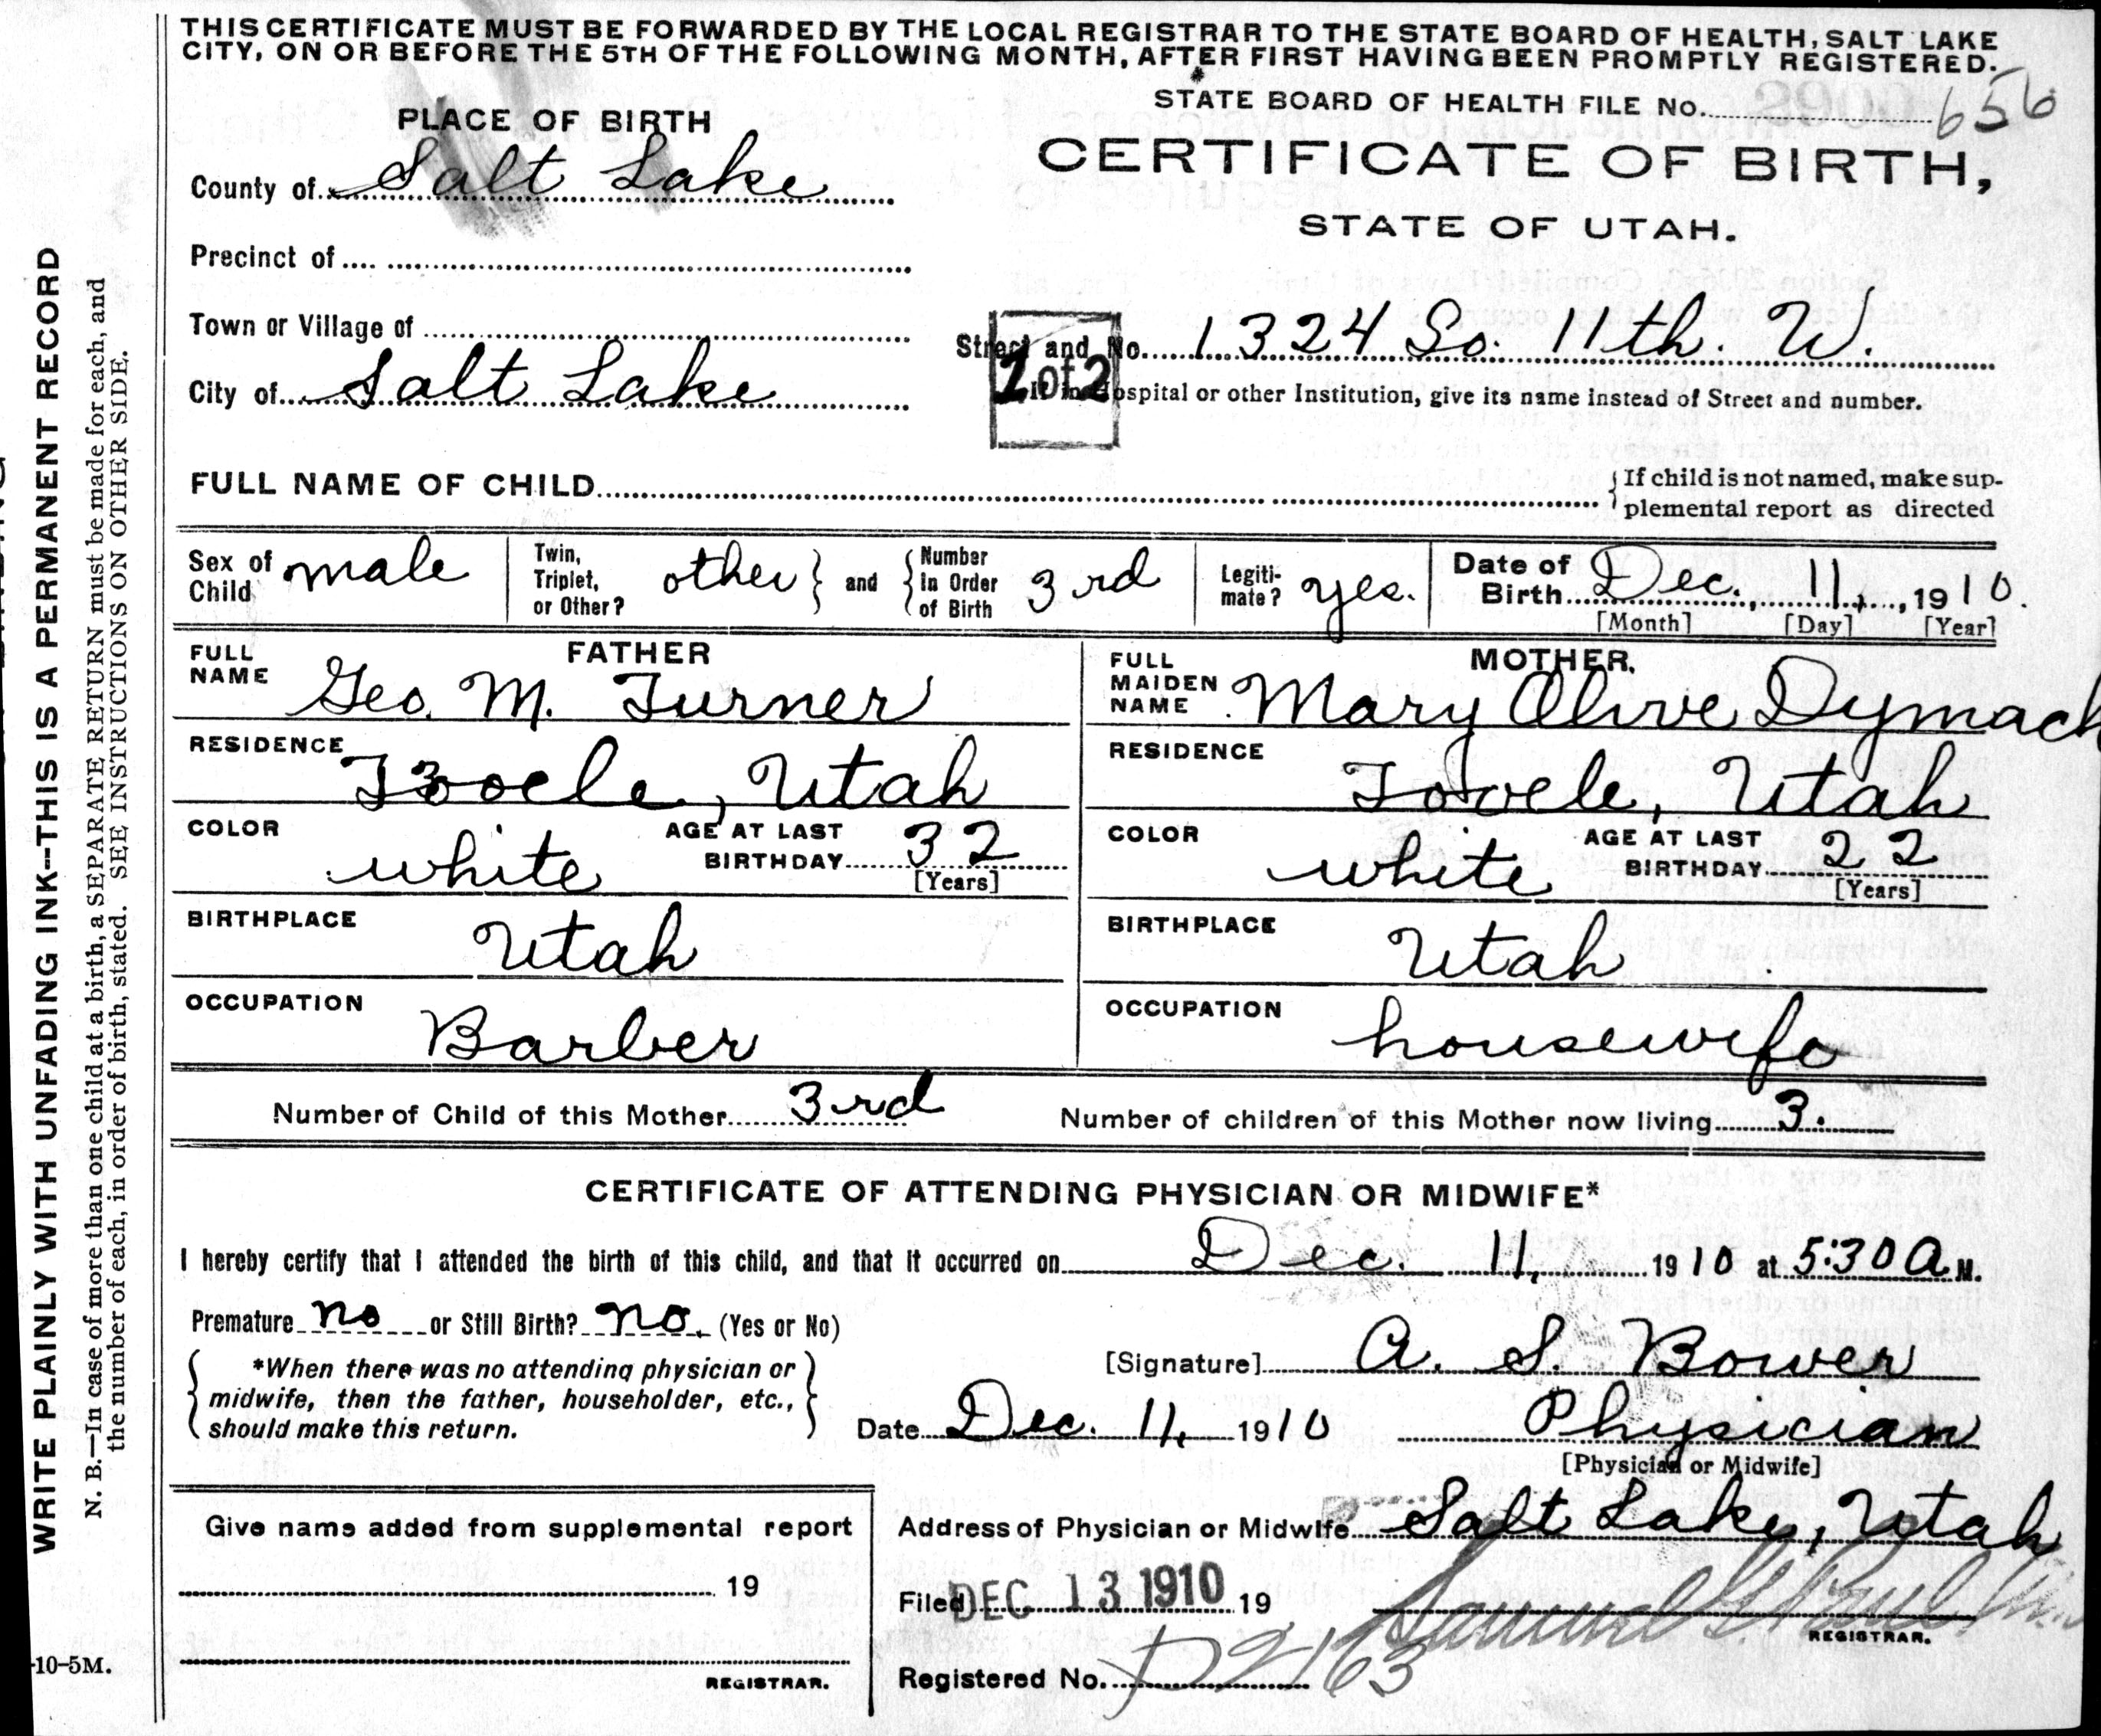 THIS CERTIFICATE MUST BE FORWARDED BY THE LOCAL REGISTRAR TO THE STATE BOARD OF HEALTH, SALT LAKE
CITY, ON OR BEFORE THE 5TH OF THE FOLLOWING MONTH, AFTER FIRST HAVING BEEN PROMPTLY REGISTERED.
STATE BOARD OF HEALTH FILE No. 656
PLACE OF BIRTH
CERTIFICATE OF BIRTH,
STATE OF UTAH.
County of Salt Lake
Precinct of
Town or Village of
Street and No. 1324 So. 11th. W.
1 of 2
City of Salt Lake
If in Hospital or other Institution, give its name instead of Street and number.
FULL NAME OF CHILD
{If child is not named, make sup-
plemental report as directed
Sex of Child male
Twin, Triplet, or Other? other } and { Number in Order of Birth 3rd
Legiti-mate? yes.
Date of Birth Dec., 11, 1910.
[Month] [Day] [Year]
FATHER
FULL NAME Geo. M. Turner
RESIDENCE Tooele, Utah
COLOR white AGE AT LAST BIRTHDAY 32
[Years]
BIRTHPLACE Utah
OCCUPATION Barber
MOTHER.
FULL MAIDEN NAME Mary Olive Dymack
RESIDENCE Tooele, Utah
COLOR white AGE AT LAST BIRTHDAY 22
[Years]
BIRTHPLACE Utah
OCCUPATION housewife
Number of Child of this Mother 3rd Number of children of this Mother now living 3.
CERTIFICATE OF ATTENDING PHYSICIAN OR MIDWIFE*
I hereby certify that I attended the birth of this child, and that it occurred on Dec. 11, 1910 at 5:30 A.M.
Premature no or Still Birth? no. (Yes or No)
*When there was no attending physician or
midwife, then the father, householder, etc.,
should make this return.
[Signature] A. S. Bower
Date Dec. 11, 1910 Physician
[Physician or Midwife]
Address of Physician or Midwife Salt Lake, Utah
Give name added from supplemental report
19
REGISTRAR.
Filed DEC 13 1910 19 Samuel G. Paul
REGISTRAR.
Registered No. D2163
WRITE PLAINLY WITH UNFADING INK--THIS IS A PERMANENT RECORD
N. B.—In case of more than one child at a birth, a SEPARATE RETURN must be made for each, and
the number of each, in order of birth, stated. SEE INSTRUCTIONS ON OTHER SIDE.
-10-5M.